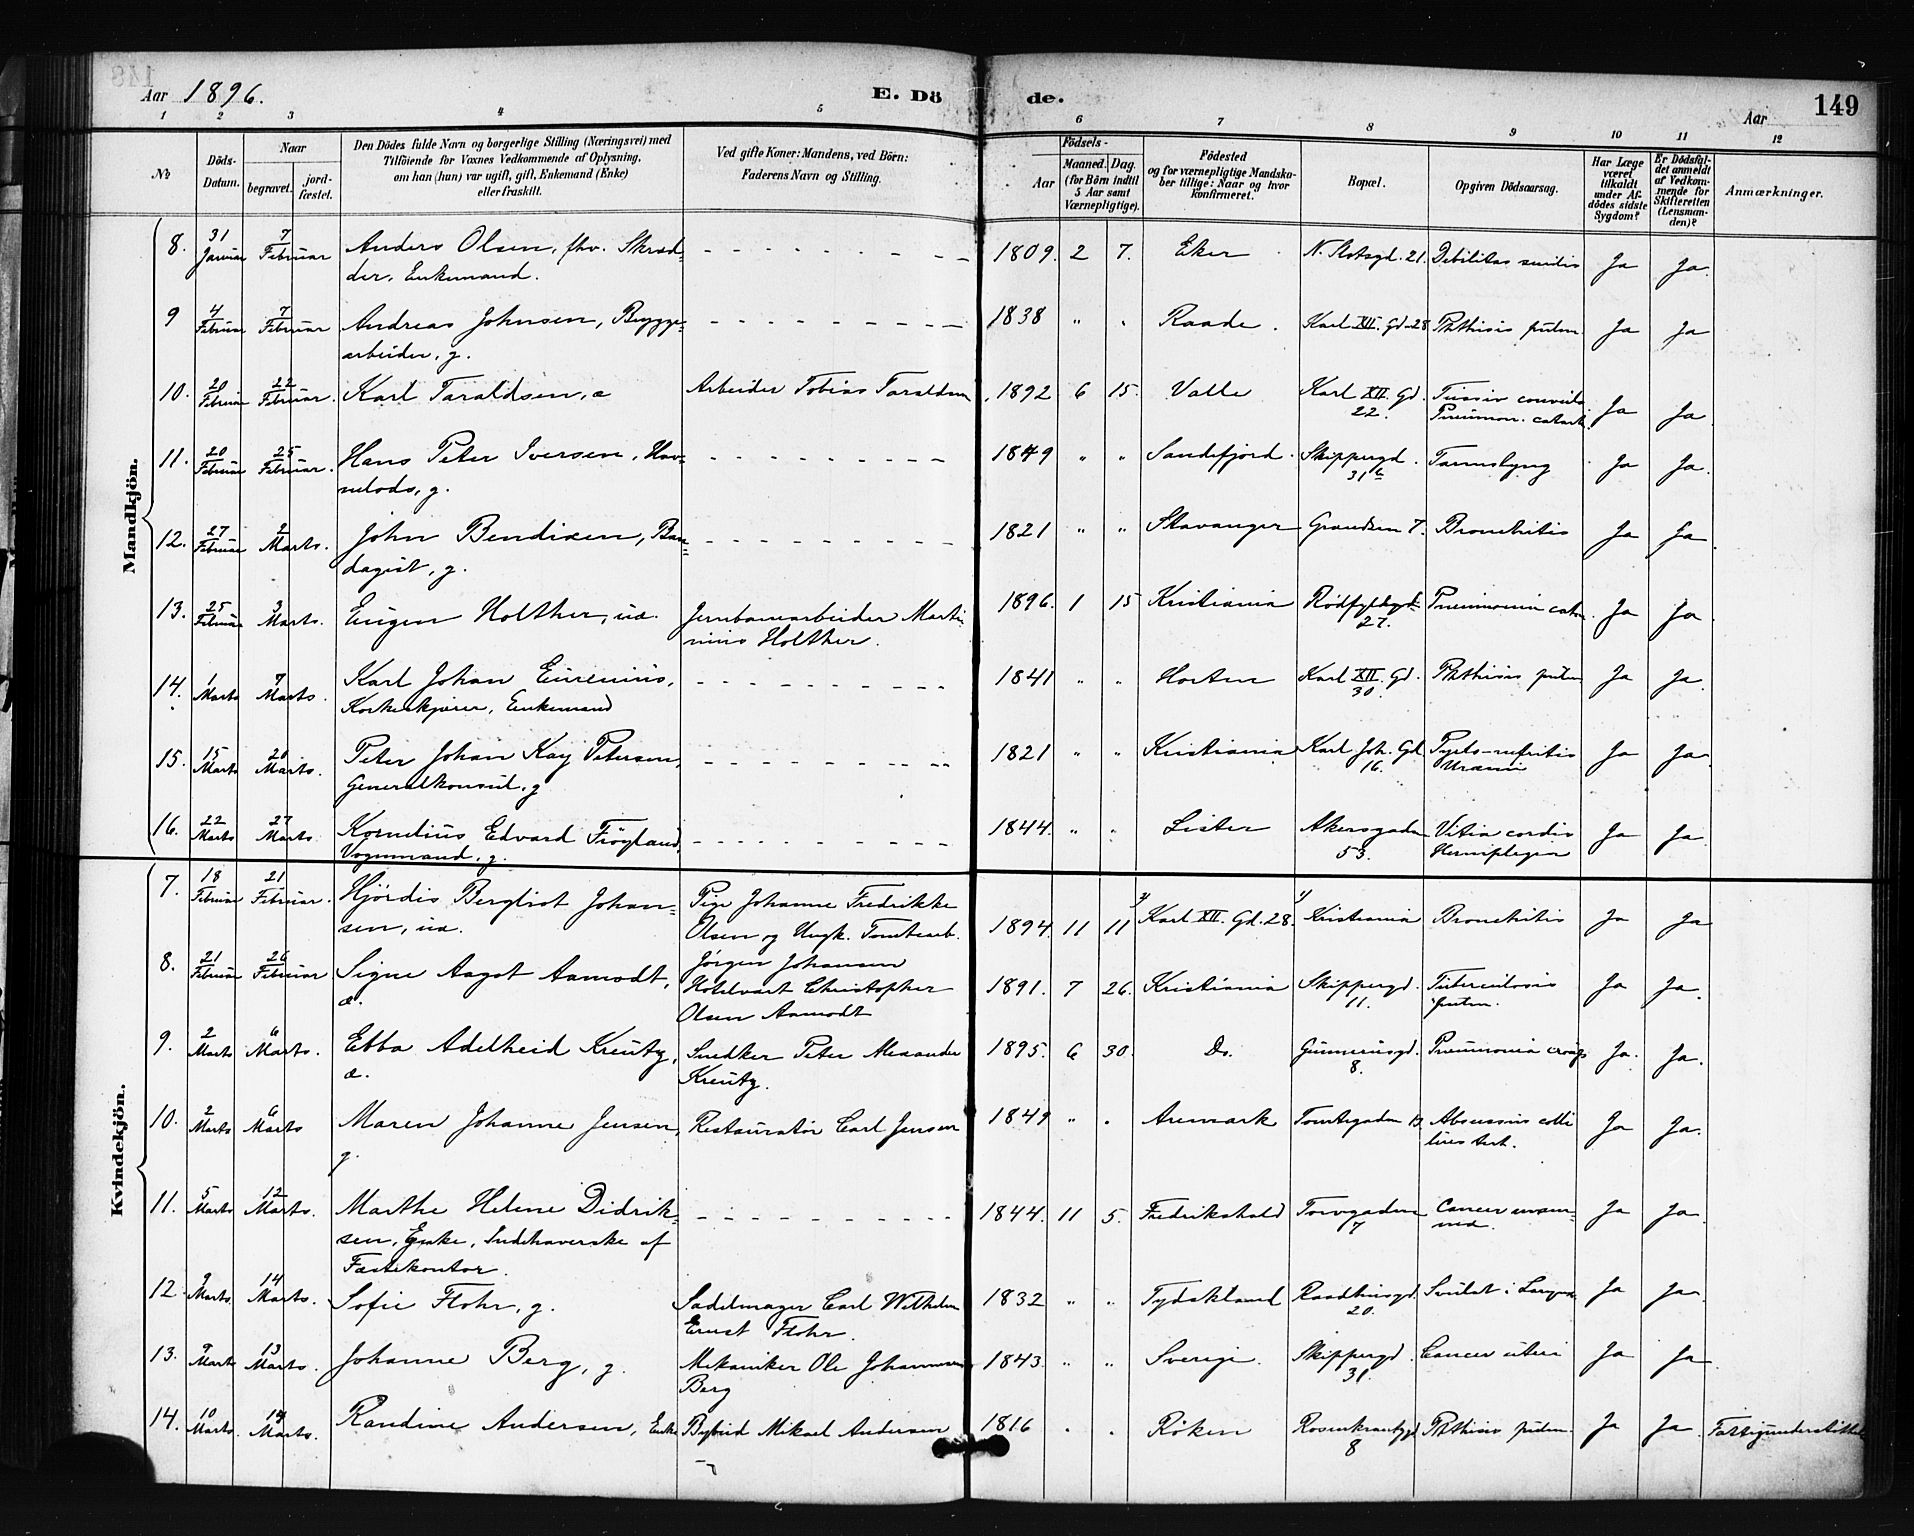 Aar 1896.
E. Dö
de.
Aar
149
1 2 3 4 5 6 7 8 9 10 11 12
No
Döds-Datum.
Naar
begravet.
jord-fæstet.
Den Dödes fulde Navn og borgerlige Stilling (Næringsvei) med
Tilföiende for Voxnes Vedkommende af Oplysning,
om han (hun) var ugift, gift, Enkemand (Enke)
eller fraskilt.
Ved gifte Koner: Mandens, ved Börn:
Faderens Navn og Stilling.
Födsels-
Aar
Maaned. Dag.
(for Börn indtil
5 Aar samt
Værnepligtige).
Födested
og for værnepligtige Mandska-
ber tillige: Naar og hvor
konfirmeret.
Bopæl.
Opgiven Dödsaarsag.
Har Læge
været
tilkaldt
under Af-
dödes sidste
Sygdom?
Er Dödsfal-
det anmeldt
af Vedkom-
mende for
Skifteretten
(Lensman-
den)?
Anmærkninger.
Mandkjön.
8. 31 Januar 7 Februar Anders Olsen, fhv. Skræd- 1809. 2 7. Eker N. Slotsgd. 21. Debilitas senilis Ja Ja.
der, Enkemand.
9 4 Februar 7 Februar Andreas Johnsen, Brygge- 1838 " " Raade. Karl XII. Gd. 28 Phthisis pulm. Ja Ja
arbeider, g.
10. 20 Februar 22 Februar. Karl Taraldsen, æ Arbeider Tobias Taraldsen 1892 6 15. Valle Karl XII. Gd. Tussis convuls. Ja Ja
22. Pneumon. catarrh.
11. 20 Februar 25 Februar. Hans Peter Iversen, Hav- 1849 " " Sandefjord. Skippergd. Tarmslyng Ja Ja.
nelods, g. 31 b
12. 27 Februar 2 Marts. John Bendixen, Ban- 1821 " " Stavanger Grændsen 7. Bronchitis Ja Ja.
dagist, g.
13. 25 Februar 3 Marts. Eugen Holther, uæ. Jernbanearbeider Marti- 1896. 1 15 Kristiania Rödfyldgd. Pneumonia catar. Ja Ja
nius Holther. 27.
14. 1 Marts 7 Marts. Karl Johan Eurenius, 1841 " " Horten Karl XII. Gd. Phthisis pulm Ja Ja.
Korkeskjærer, Enkemand 30.
15. 15 Marts 20 Marts. Peter Johan Kay Petersen, 1821 " " Kristiania Karl Joh. Gd. Pyelo-nefritis Ja Ja.
Generalkonsul, g 16. Uræmi
16. 22 Marts 27 Marts Kornelius Edvard Fröyland, 1844. " " Lister Akersgaden Vitia cordis Ja Ja.
Vognmand, g. 53. Hemiplegia
Kvindekjön.
7. 18 Februar 21 Februar. Hjördis Bergliot Johan- Pige Johanne Fredrikke 1894. 11 11 Karl XII. Gd. 28. Kristiania Bronchitis Ja Ja
sen, uæ. Olsen og Ungk. Tomtearb.
Jörgen Johansen
8. 21 Februar 26 Februar Signe Aagot Aamodt, Hotelvært Christopher 1891. 7 26. Kristiania Skippergd. Tuberculosis Ja Ja.
æ. Olsen Aamodt 11. pulm.
9. 2 Marts 6 Marts. Ebba Adelheid Kreutz, Snedker Peter Alexander 1895. 6 30. Do. Gunnerusgd. Pneumonia croup. Ja. Ja.
æ. Kreutz. 8.
10. 2 Marts 6 Marts Maren Johanne Jensen, Restauratör Carl Jensen 1849 " " Aremark Tomtegaden 13. Abscessus colli Ja Ja.
g.
11. 5 Marts 12 Marts. Marthe Helene Didrik- 1844. 11 5. Fredrikshald Torvgaden Cancer mam- Ja Ja.
sen, Enke, Indehaverske af 7 mæ.
Fæstekontor.
12. 9 Marts. 14 Marts. Sofie Flohr, g. Sadelmager Carl Wilhelm 1832 " " Tydskland Raadhusgd. Svulst i Ja Ja.
Ernst Flohr. 20.
13. 9 Marts 13 Marts. Johanne Berg, g. Mekaniker Ole Johannesen 1843. " " Sverige. Skippergd. Cancer uteri Ja Ja.
Berg 31.
14. 10 Marts. 14 Marts. Randine Andersen, Enke Bybud Mikael Andersen 1816 " " Röken Rosenkrantzgd. Phthisis pulm. Ja Ja. Fattigunderstöttet
8